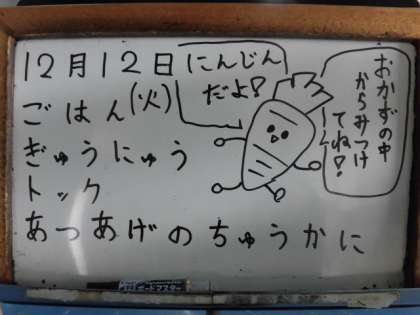 12月12日
(火)
ごはん
ぎゅうにゅう
トック
あつあげのちゅうかに
にんじん
だよ?
おかずの中
からみつけ
てね!
ボードマスター